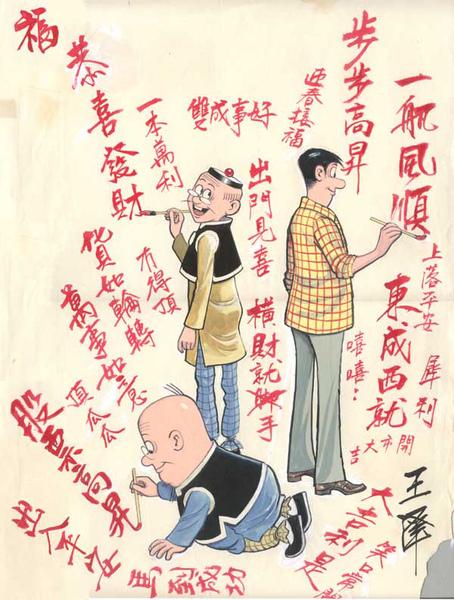 一帆風順
步步高昇
迎春接福
好事成雙
一本萬利
恭喜發財
福
上落平安
東成西就
犀利
嘻嘻!
開市大吉
出門見喜
橫財就手
冇得頂
貨如輪轉
萬事如意
頂瓜瓜
股票高昇
出入平安
馬到成功
大吉利是
笑口常開
王澤